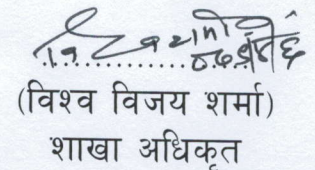 (विश्व विजय शर्मा)
शाखा अधिकृत